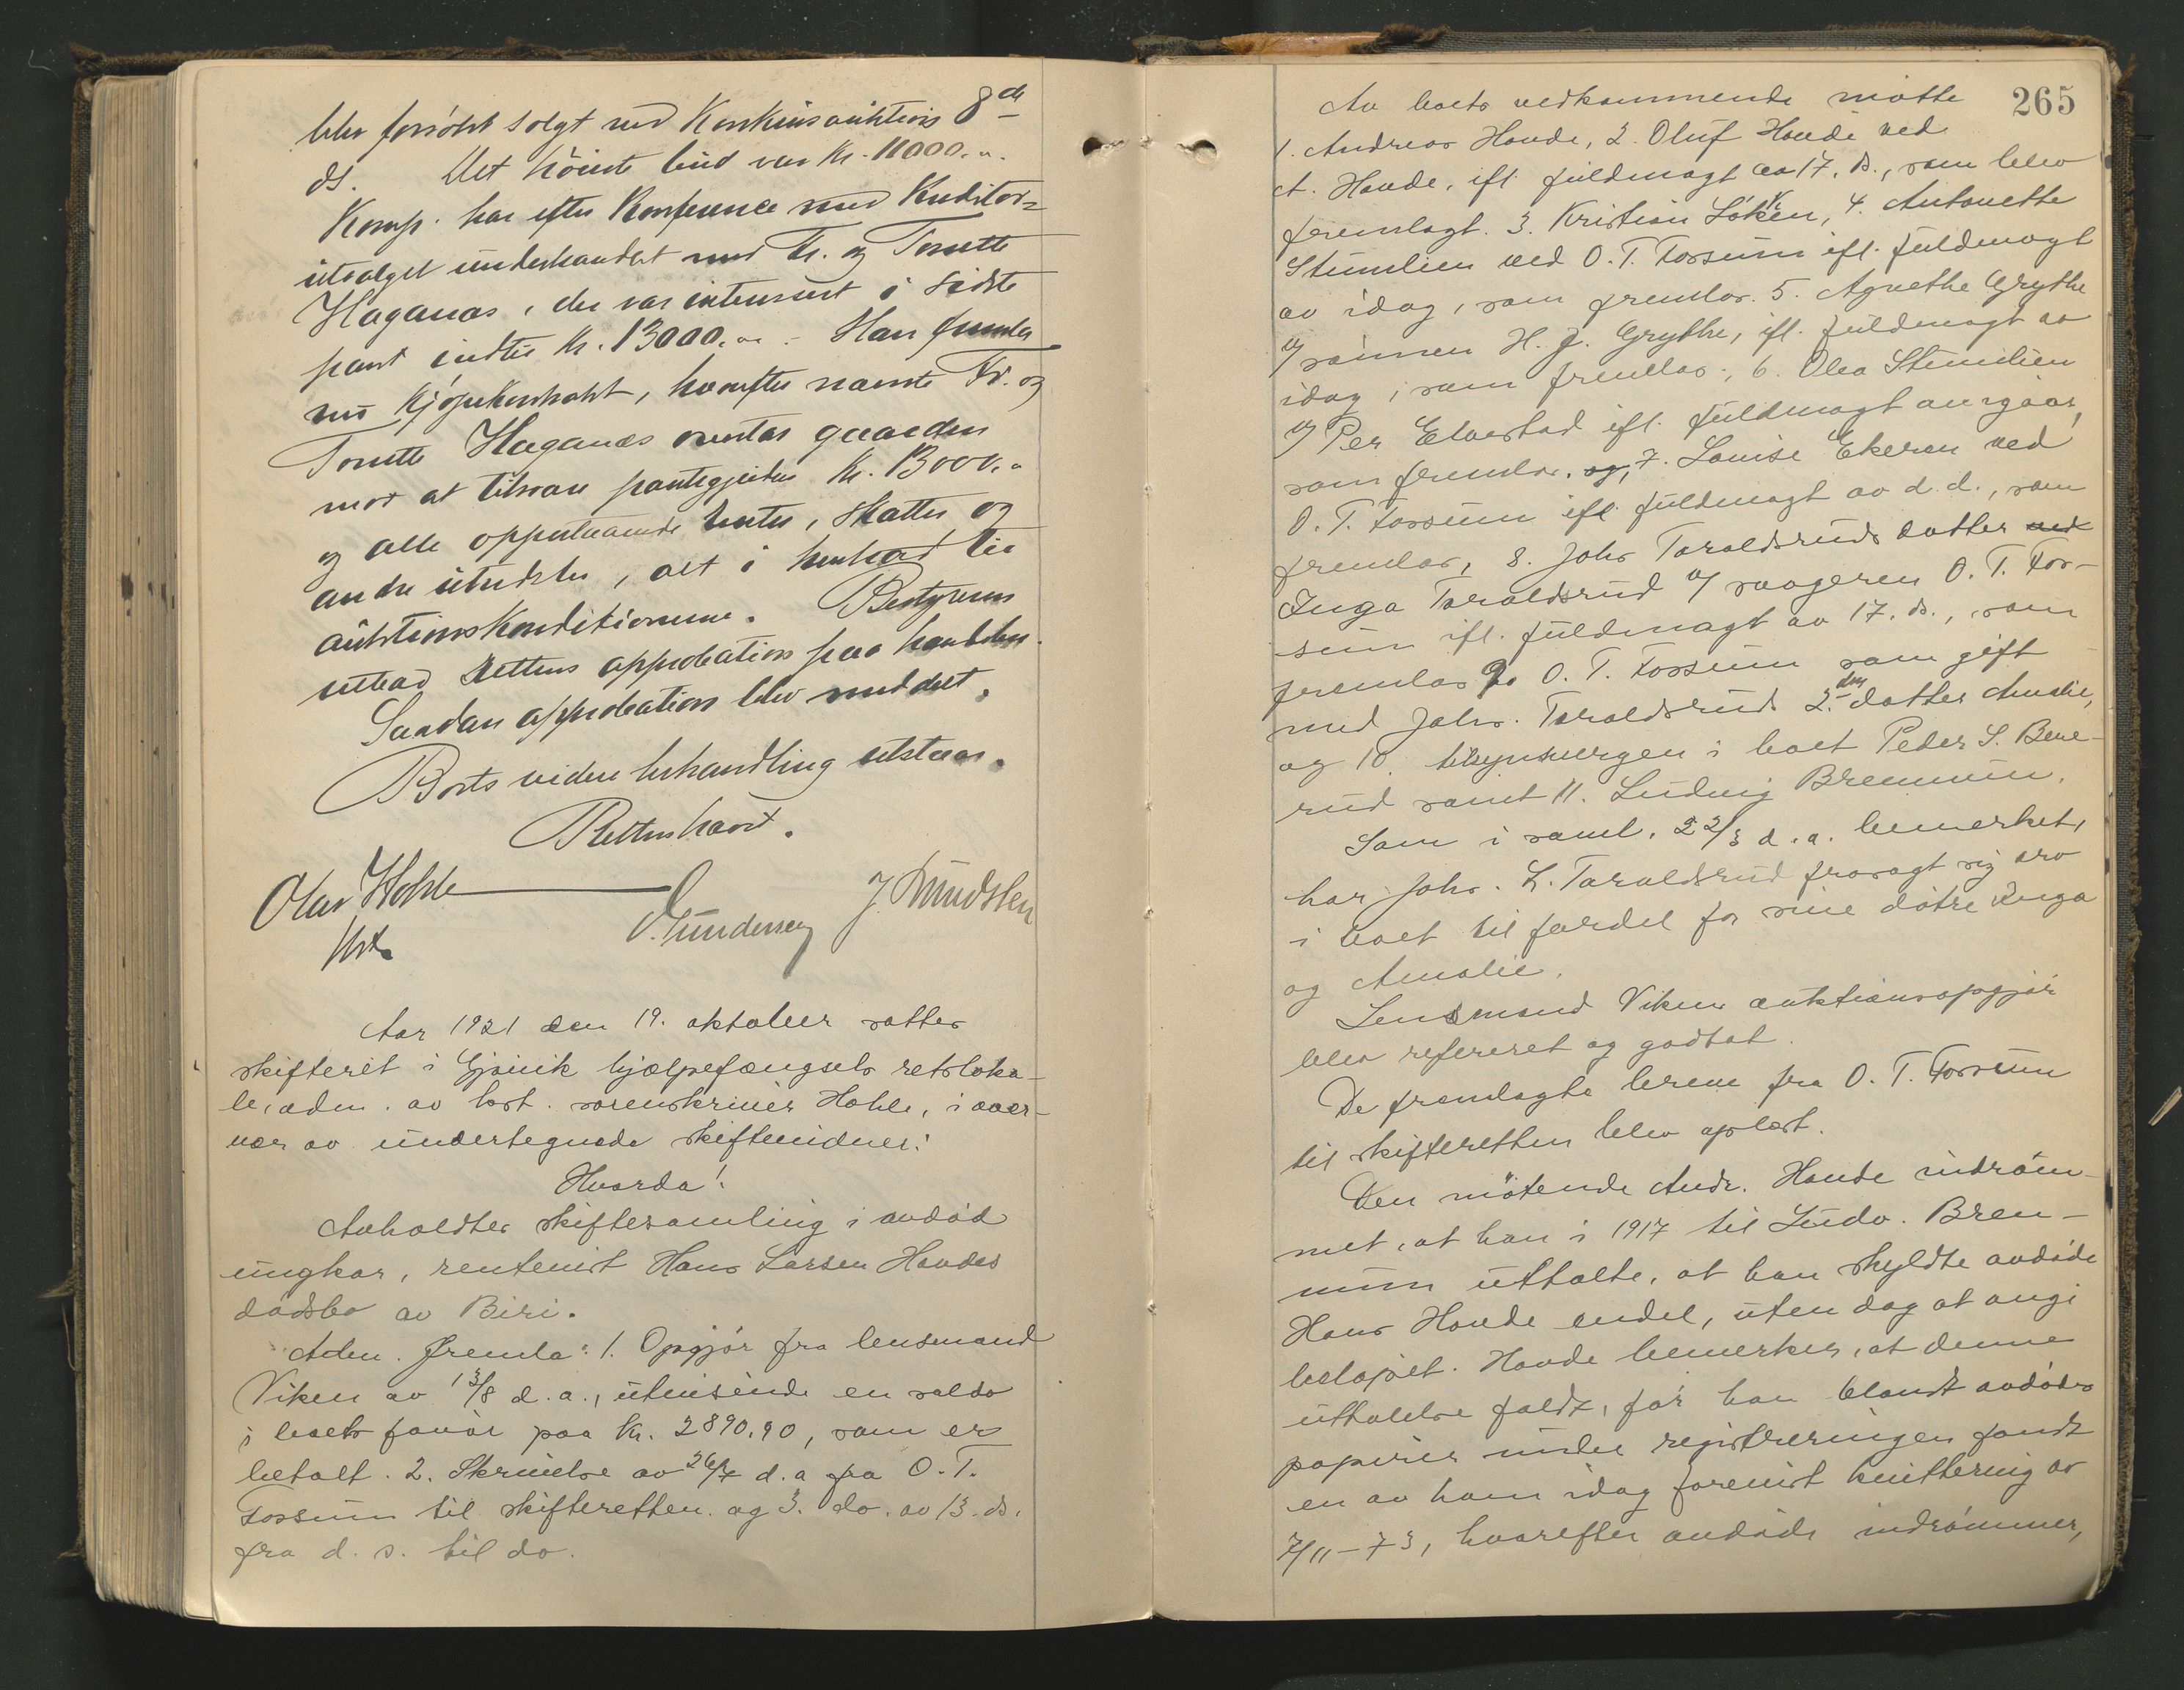 blev forsøkt solgt ved Konkursauktion 8de
ds. Det höieste bud var kr. 11000.oo.
Komp. har efter Konferance med Kreditor=
utvalget underhandlet med Fr. og Torette
Haganæs, der var interessert i sidste
pant indtil kr. 13000.oo. Han fremla
nu Kjøpekontrakt, hvorefter nævnte Fr. og
Torette Haganæs overtar gaarden
mot at tilsvare pantegjælden kr. 13000.oo
og alle opperlæpende renter, skatter og
andre utredsler, alt i henhold til
auktionskonditionerne. Bestyreren
utbad Rettens approbation paa handelen.
Saadan approbation blev meddelt.
Boets videre behandling utstaar.
Retten hævet.
Olav Hohle O. Gundersen J. Sundsten
Kst.
Aar 1921 den 19. oktober sattes
skifteret i Gjøvik hjælpefængsels retsloka-
le, adm. av kst. sorenskriver Hohle, i over-
vær av undertegnede skiftevidner:
Hvorda!
Avholdtes skiftesamling i avdød
ungkar, rentenist Hans Larsen Hovdes
dødsbo av Biri.
Adm. fremla: 1. Opgjör fra lensmand
Viken av 13/8 d.a., utvisende en saldo
i boets favör paa kr. 2890,90, som er
betalt. 2. Skrivelse av 26/7 d.a fra O. T.
Fossum til skifteretten og 3. do. av 13. ds.
fra d. s. til do.
265
Av boets vedkommende møtte
1. Andreas Hovde, 2. Oluf Hovde ved
A. Hovde, ifl. fuldmagt av 17. ds., som blev
fremlagt. 3. Kristian Løkken, 4. Antonette
Stumlien ved O. T. Fossum ifl. fuldmagt
av idag, som fremlas. 5. Agnethe Grythe
v/ sönnen H. J. Grythe, ifl. fuldmagt av
idag, som fremlas., 6. Olea Stumlien
v/ Per Elvestad ifl. fuldmagt av igaar,
som fremlas. og, 7. Louise Ekeren ved
O. T. Fossum ifl fuldmagt av d.d., som
fremlas, 8. Johs Taraldsruds datter ved
Inga Taraldsrud v/ svogeren O. T. Fos-
sum ifl. fuldmagt av 17. ds., som
fremlas 9. O. T. Fossum som gift
med Johs. Taraldsruds 2.den datter Amalie,
og 10. tilsynsvergen i boet Peder S. Bene-
rud samt 11. Ludvig Bremmum.
Som i saml. 22/3 d.a. bemerket,
har Johs. L. Taraldsrud frasagt sig arv
i boet til fordel for sine døtre Inga
og Amalie.
Lensmand Vikens auktionsopgjör
blev refereret og godtat.
De fremlagte breve fra O. T. Fossum
til skifteretten blev oplæst.
Den mötende Andr. Hovde indröm-
met, at han i 1917 til Ludv. Brem-
mum uttalte, at han skyldte avdöde
Hans Hovde endel, uten dog at angi
belöpet. Hovde bemerker, at denne
uttalelse faldt, før han blandt avdødes
papirer under registreringen fandt
en av ham idag forevist kvittering av
7/11-73, hvorefter avdøde indrømmer,